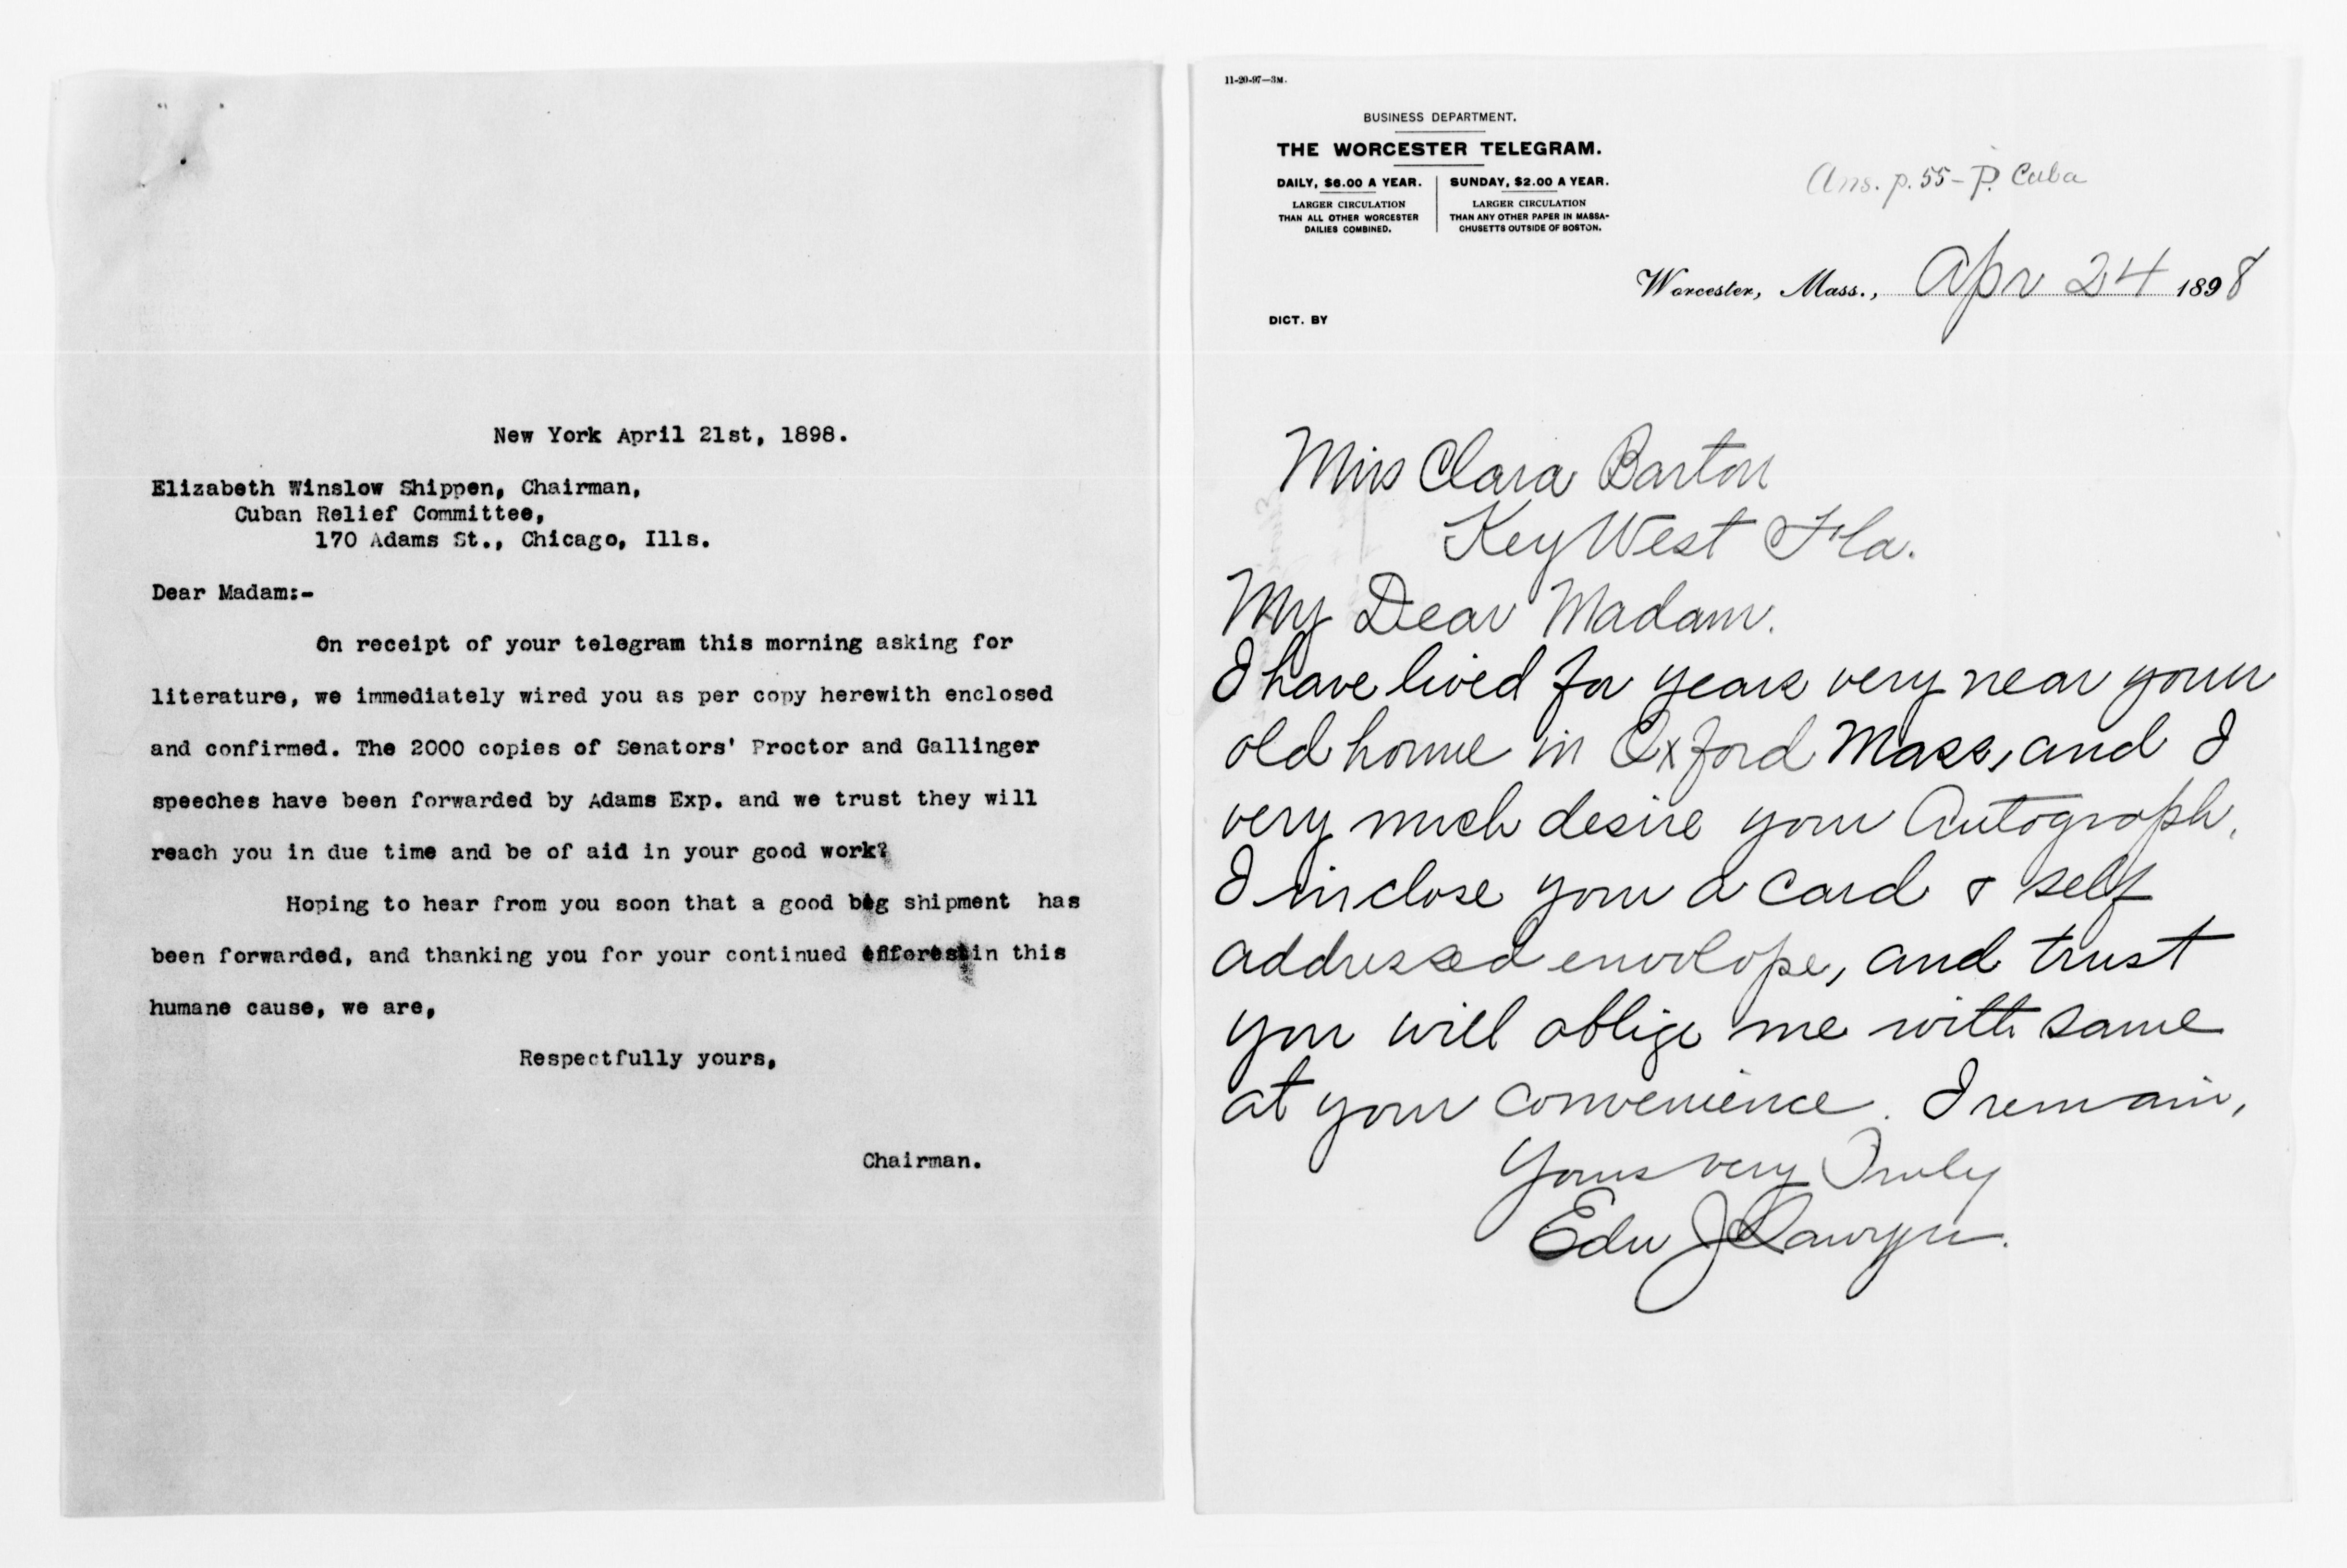 New York April 21st, 1898.
Elizabeth Winslow Shippen, Chairman,
Cuban Relief Committee,
170 Adams St., Chicago, Ills.
Dear Madam:-
On receipt of your telegram this morning asking for
literature, we immediately wired you as per copy herewith enclosed
and confirmed. The 2000 copies of Senators' Proctor and Gallinger
speeches have been forwarded by Adams Exp. and we trust they will
reach you in due time and be of aid in your good work?
Hoping to hear from you soon that a good big shipment has
been forwarded, and thanking you for your continued in this
humane cause, we are,
Respectfully yours,
Chairman.
11-20-97—3M.
BUSINESS DEPARTMENT.
THE WORCESTER TELEGRAM.
DAILY, $6.00 A YEAR.
LARGER CIRCULATION
THAN ALL OTHER WORCESTER
DAILIES COMBINED.
SUNDAY, $2.00 A YEAR.
LARGER CIRCULATION
THAN ANY OTHER PAPER IN MASSA-
CHUSETTS OUTSIDE OF BOSTON.
Ans. p. 55 - P. Cuba
Worcester, Mass., Apr 24 1898
DICT. BY
Miss Clara Barton
Key West Fla.
My Dear Madam.
I have lived for years very near your
old home in Oxford Mass, and I
very much desire your Autograph,
I inclose your a card & self
addressed envelope, and trust
you will oblige me with same
at your convenience. I remain,
Yours very Truly
Edw J Sawyer.